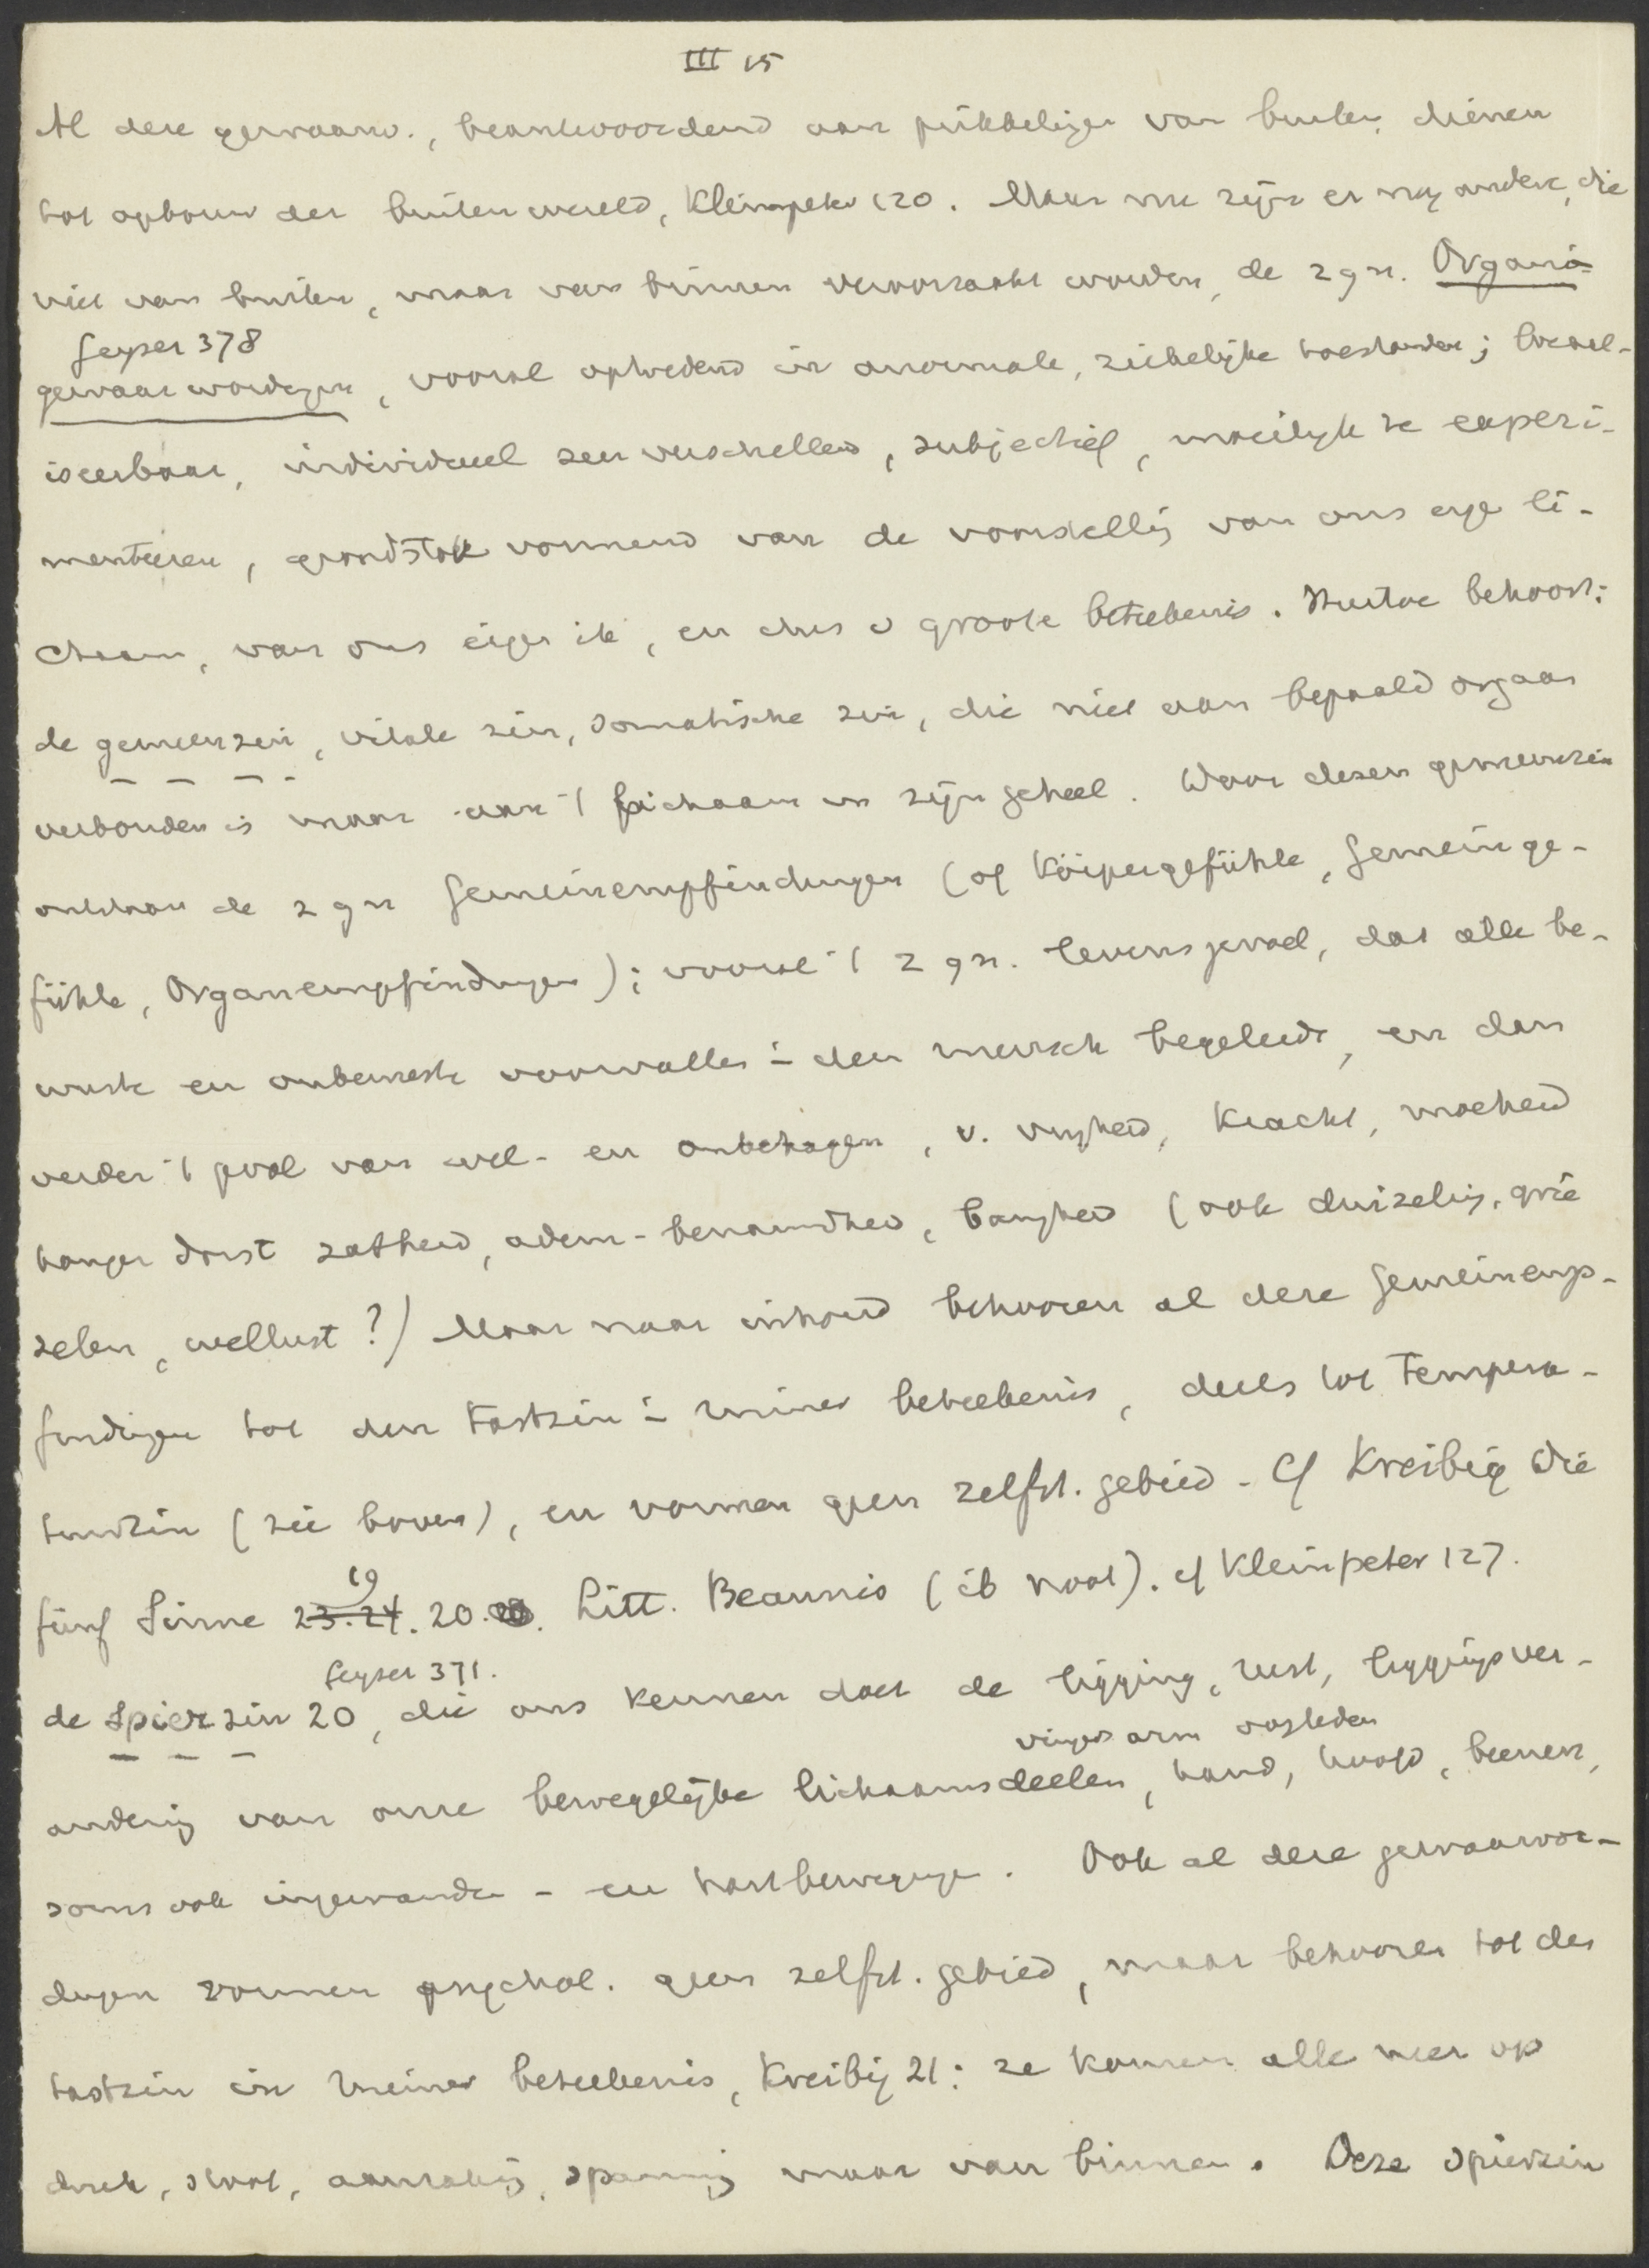 III 15
Al deze gewaarw., beantwoordend aan prikkelingen van buiten, dienen
tot opbouw der buitenwereld, Kleinpeter 120. Maar nu zijn er nog andere, die
niet van buiten, maar van binnen veroorzaakt worden, de zgn. Organ-
Geyser 378
gewaarwordingen, vooral optredend in anormale, ziekelijke toestanden; localis-
iseerbaar, individueel zeer verschillend, subjectief, moeilijk te experi-
menteeren, grondstok vormend van de voorstelling van ons eigen li-
chaam, van ons eigen ik, en dus v groote beteekenis. Hiertoe behoort:
de gemeenzin, vitale zin, somatische zin, die niet aan bepaald orgaan
verbonden is maar aan 't lichaam in zijn geheel. Door dezen gemeenzin
ontstaan de zgn Gemeinempfindungen (of Körpergefühle, Gemeinge-
fühle, Organempfindungen); vooral 't zgn. levensgevoel, dat alle be-
wuste en onbewuste voorvallen i- den mensch begeleidt, en dan
verder 't gvoel van wel- en onbehagen, v. vrijheid, kracht, moeheid
honger dorst zatheid, adem-benauwdheid, bangheid (ook duizelig, grie
zelen, wellust?) Maar naar inhoud behooren al deze Gemeinemp-
findingen tot den tastzin i- ruimer beteekenis, deels tot tempera-
tuurzin (zie boven), en vormen geen zelfst. gebied - Cf Kreibig Die
19
fünf Sinne 23.24. 20. Litt. Beaunis (ib noot). cf Kleinpeter 127.
Geyser 371.
de spierzin 20, die ons kennen doet de ligging, rust, liggingsver-
vingers arm oogleden
andering van onze bewegelijke lichaamsdeelen, hand, hoofd, beenen,
soms ook ingewanden - en hartbewegingen. Ook al deze gewaarwor-
dingen vormen psychol. geen zelfst. gebied, maar behooren tot den
tastzin in ruimer beteekenis, Kreibig 21: ze komen alle neer op
druk, stoot, aanraking, spanning maar van binnen. Deze spierzin